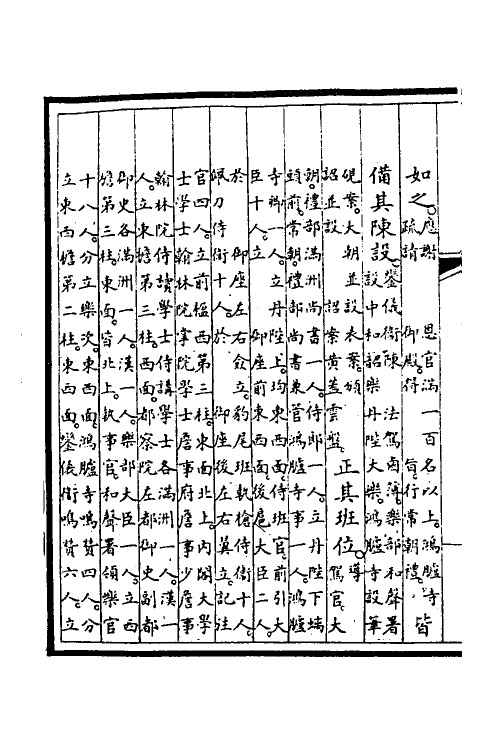 如之。應謝 恩官滿一百名以上。鴻臚寺
疏請 御殿。得 旨。行常朝禮。 皆
備其陳設。鑾儀衛陳 法駕鹵簿。樂部和聲署
設中和韶樂丹陛大樂。鴻臚寺設筆
硯案。大朝並設表案。頒
詔並設 詔案黃蓋雲盤。 正其班位。導 駕官大
朝。禮部滿洲尚書一人。侍郎一人。立丹陛下墀
頭前。常朝。禮部尚書兼管鴻臚寺事一人。鴻臚
寺卿一人。立丹陛上。均東西面。侍班官。前引大
臣十人。立 御座前東西面。後扈大臣二人。
於 御座左右僉立。豹尾班執槍侍衛十人。
佩刀侍衛十人。於 御座後左右翼立。記注
官四人。立前楹西第三柱。東面北上。內閣大學
士學士翰林院掌院學士詹事府詹事少詹事
翰林院侍讀學士侍講學士各滿洲一人。漢一
人。立東檐第三柱。西面。都察院左都御史副都
御史各滿洲一人。漢一人。樂部大臣一人。立西
檐第三柱。東面。皆北上。執事官。和聲署領樂官
十八人。分立樂次。東西面。鴻臚寺鳴贊四人。分
立東西檐第二柱。東西面。鑾儀衛鳴贊六人。立